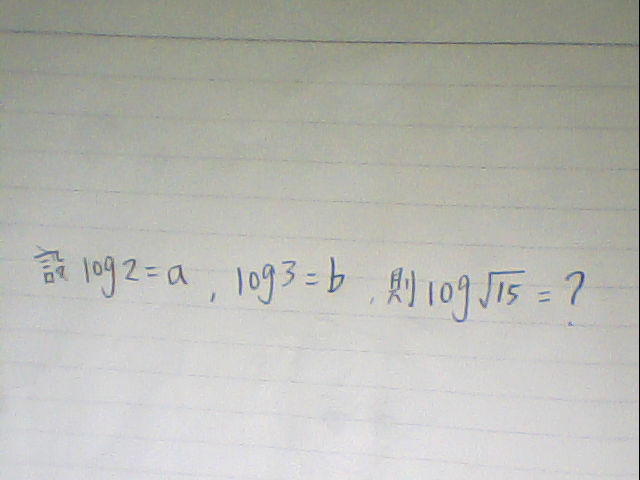 設 log 2 = a , log 3 = b , 則 log √15 = ?